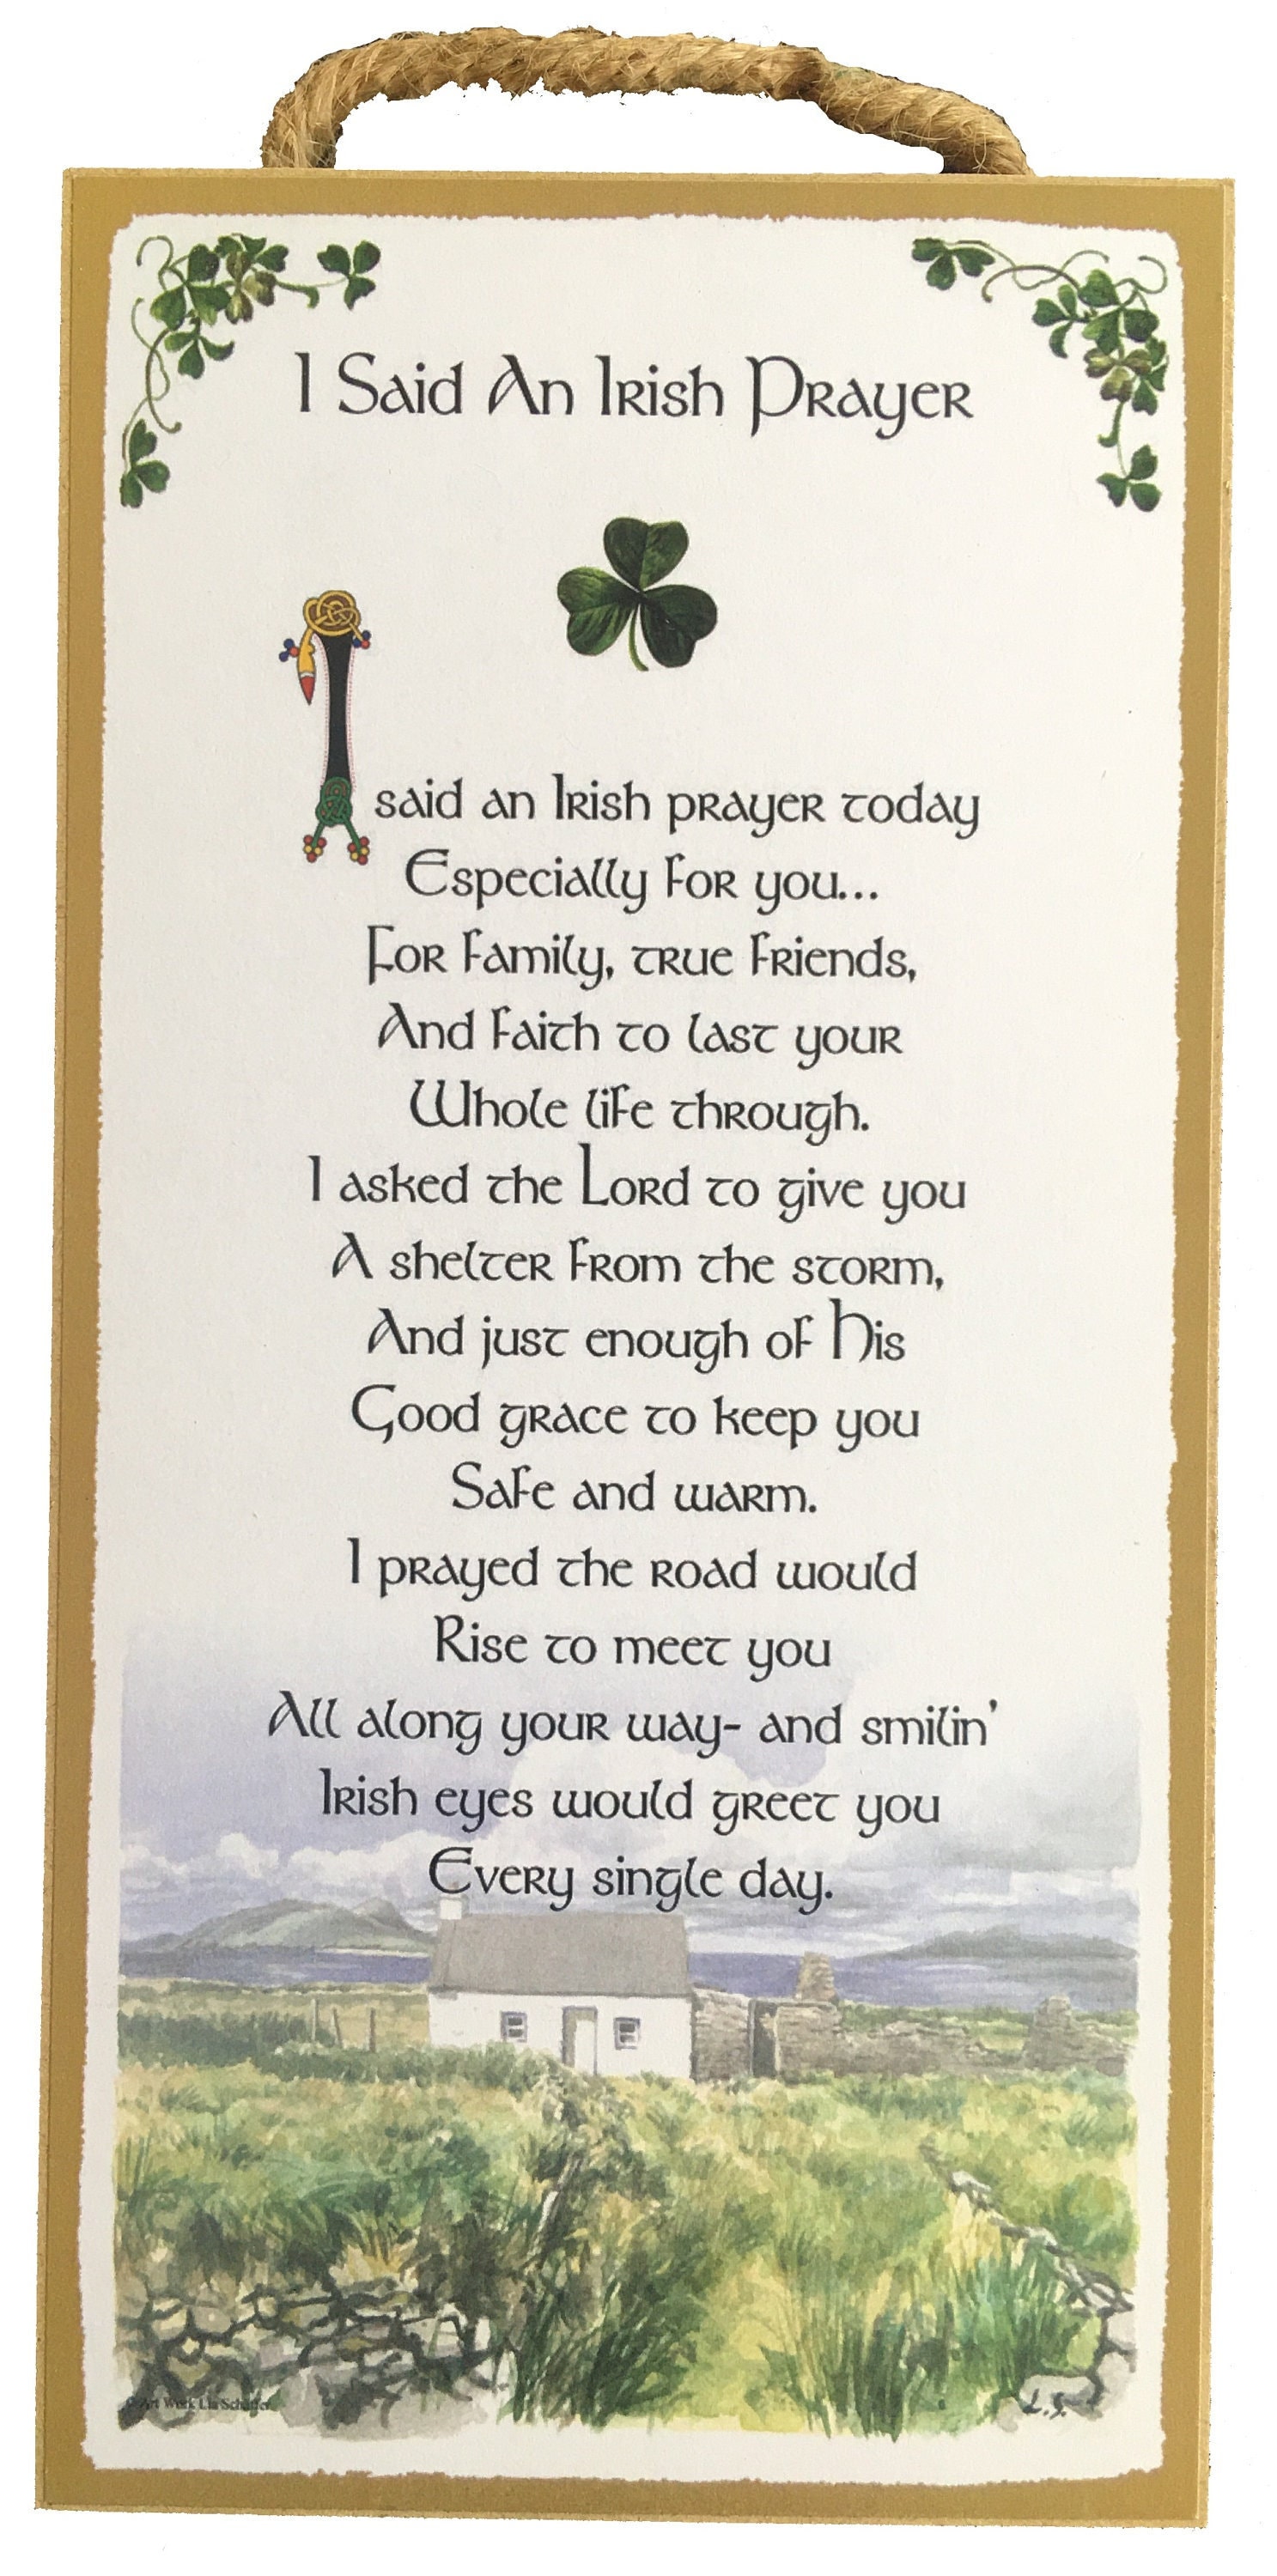 I Said An Irish Prayer
I said an Irish prayer today
Especially for you...
For family, true friends,
And faith to last your
Whole life through.
I asked the Lord to give you
A shelter from the storm,
And just enough of His
Good grace to keep you
Safe and warm.
I prayed the road would
Rise to meet you
All along your way- and smilin'
Irish eyes would greet you
Every single day.
Art Work
L.S.